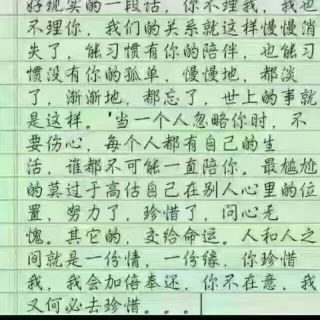 好现实的一段话，你不理我，我也
不理你，我们的关系就这样慢慢消
失了，能习惯有你的陪伴，也能习
惯没有你的孤单，慢慢地，都淡
了，渐渐地，都忘了，世上的事就
是这样。'当一个人忽略你时，不
要伤心，每个人都有自己的生
活，谁都不可能一直陪你。最尴尬
的莫过于高估自己在别人心里的位
置，努力了，珍惜了，问心无
愧。其它的，交给命运。人和人之
间就是一份情，一份缘，你珍惜
我，我会加倍奉还，你不在意，我
又何必去珍惜...